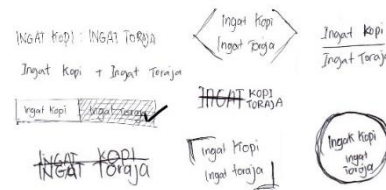 INGAT KOPI : INGAT TORAJA
Ingat Kopi + Ingat Toraja
Ingat Kopi Ingat Toraja
INGAT KOPI
INGAT Toraja
Ingat Kopi
Ingat Toraja
INGAT KOPI
TORAJA
Ingat Kopi
Ingat toraja
Ingat Kopi
Ingat Toraja
Ingat Kopi
ingat
toraja